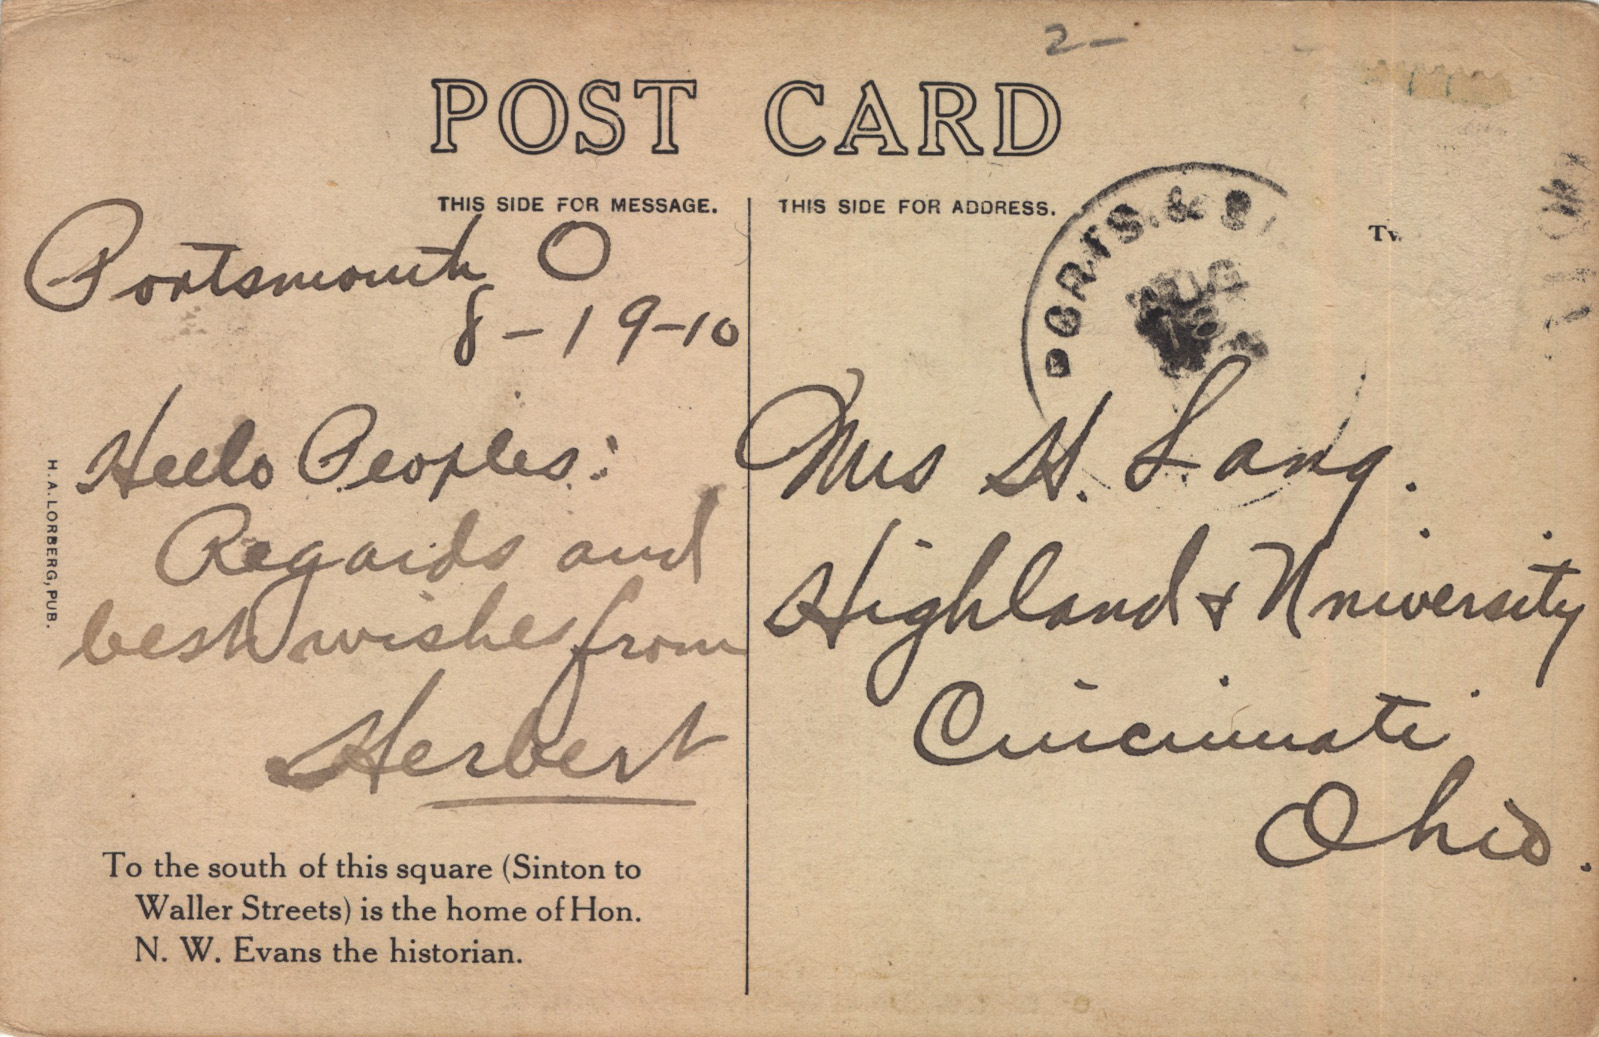 2-
POST CARD
THIS SIDE FOR MESSAGE.
Portsmouth O
8-19-10
Hello Peoples:
Regards and
best wishes from
Herbert
To the south of this square (Sinton to
Waller Streets) is the home of Hon.
N. W. Evans the historian.
H. A. LORBERG, PUB.
THIS SIDE FOR ADDRESS.
PORTS. &
AUG
Mrs H. Lang.
Highland & University
Cincinnati
Ohio.